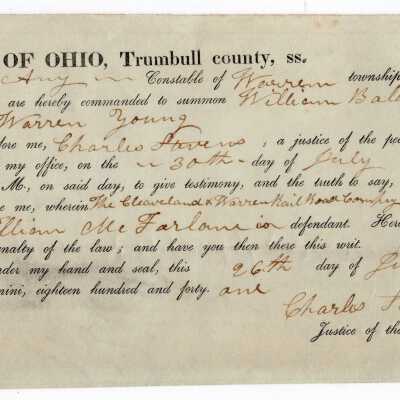 OF OHIO, Trumbull county, ss.
Any Constable of Warren township
are hereby commanded to summon William Bal
Warren Young
ore me, Charles Stevens ; a justice of the pea
my office, on the 30th day of July
M., on said day, to give testimony, and the truth to say,
e me, wherein The Cleaveland & Warren Rail Road Company
illiam Mc Farlane is defendant. Here
enalty of the law; and have you then there this writ.
nder my hand and seal, this 26th day of Ju
mini, eighteen hundred and forty. one
Charles
Justice of the